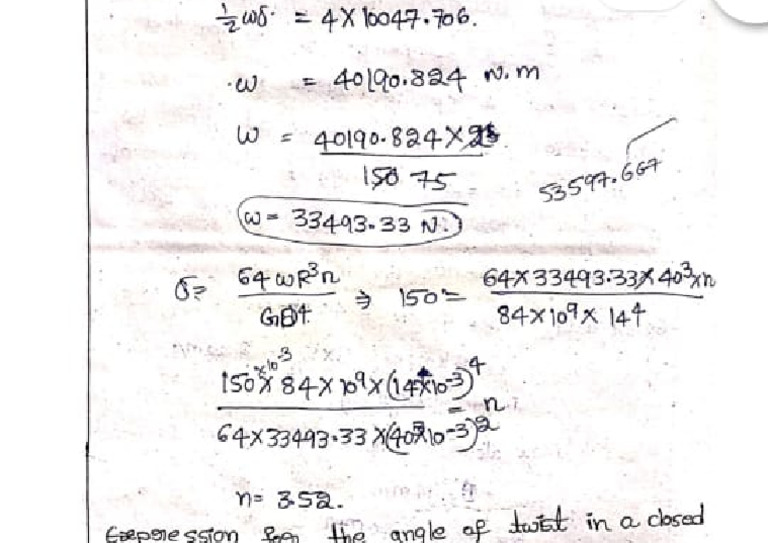 ½ωδ = 4×10047.706.
ω = 40190.824 N.m
W = 40190.824×2
150 75
53597.667
ω = 33493.33 N.
δ= 64ωR³n / GD4 ⇒ 150 = 64×33493.33×40³×n / 84×10⁹×14⁴
150×10⁻³×84×10⁹×(14×10⁻³)⁴ / 64×33493.33×(40×10⁻³)² = n
n= 3.52.
the angle of twist in a closed